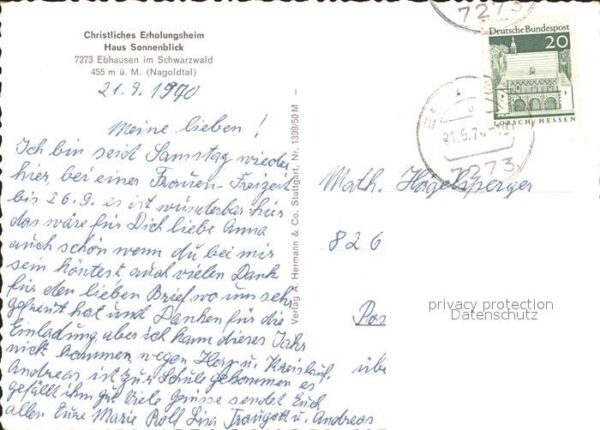 Christliches Erholungsheim
Haus Sonnenblick
7273 Ebhausen im Schwarzwald
455 m ü. M. (Nagoldtal)
21.9.1970
Meine lieben!
Ich bin seid Samstag wieder
hier, bei einer Frauen-Freizeit
bis 26.9. es ist wunderbar hier
das wäre für Dich liebe Anna
auch schön wenn du bei mir
sein köntest auch vielen Dank
für den lieben Brief wo uns sehr
gefreut hat und Danken für die
Einladung aber ich kann dieses Jahr
nick kommen wegen Herz u. Kreislauf,
Andreas ist zur Schule gekommen es
gefällt ihm gut Viele Grüsse sendet Euch
allen Eure Marie Rolf Lisa Traugott u. Andreas
Verlag A. Hermann & Co. Stuttgart, Nr. 1339/50 M
7273
Deutsche Bundespost
20
LORSCH/HESSEN
21.9.70
7273
Math. Hagelsperger
826
Pos
übe
privacy protection
Datenschutz